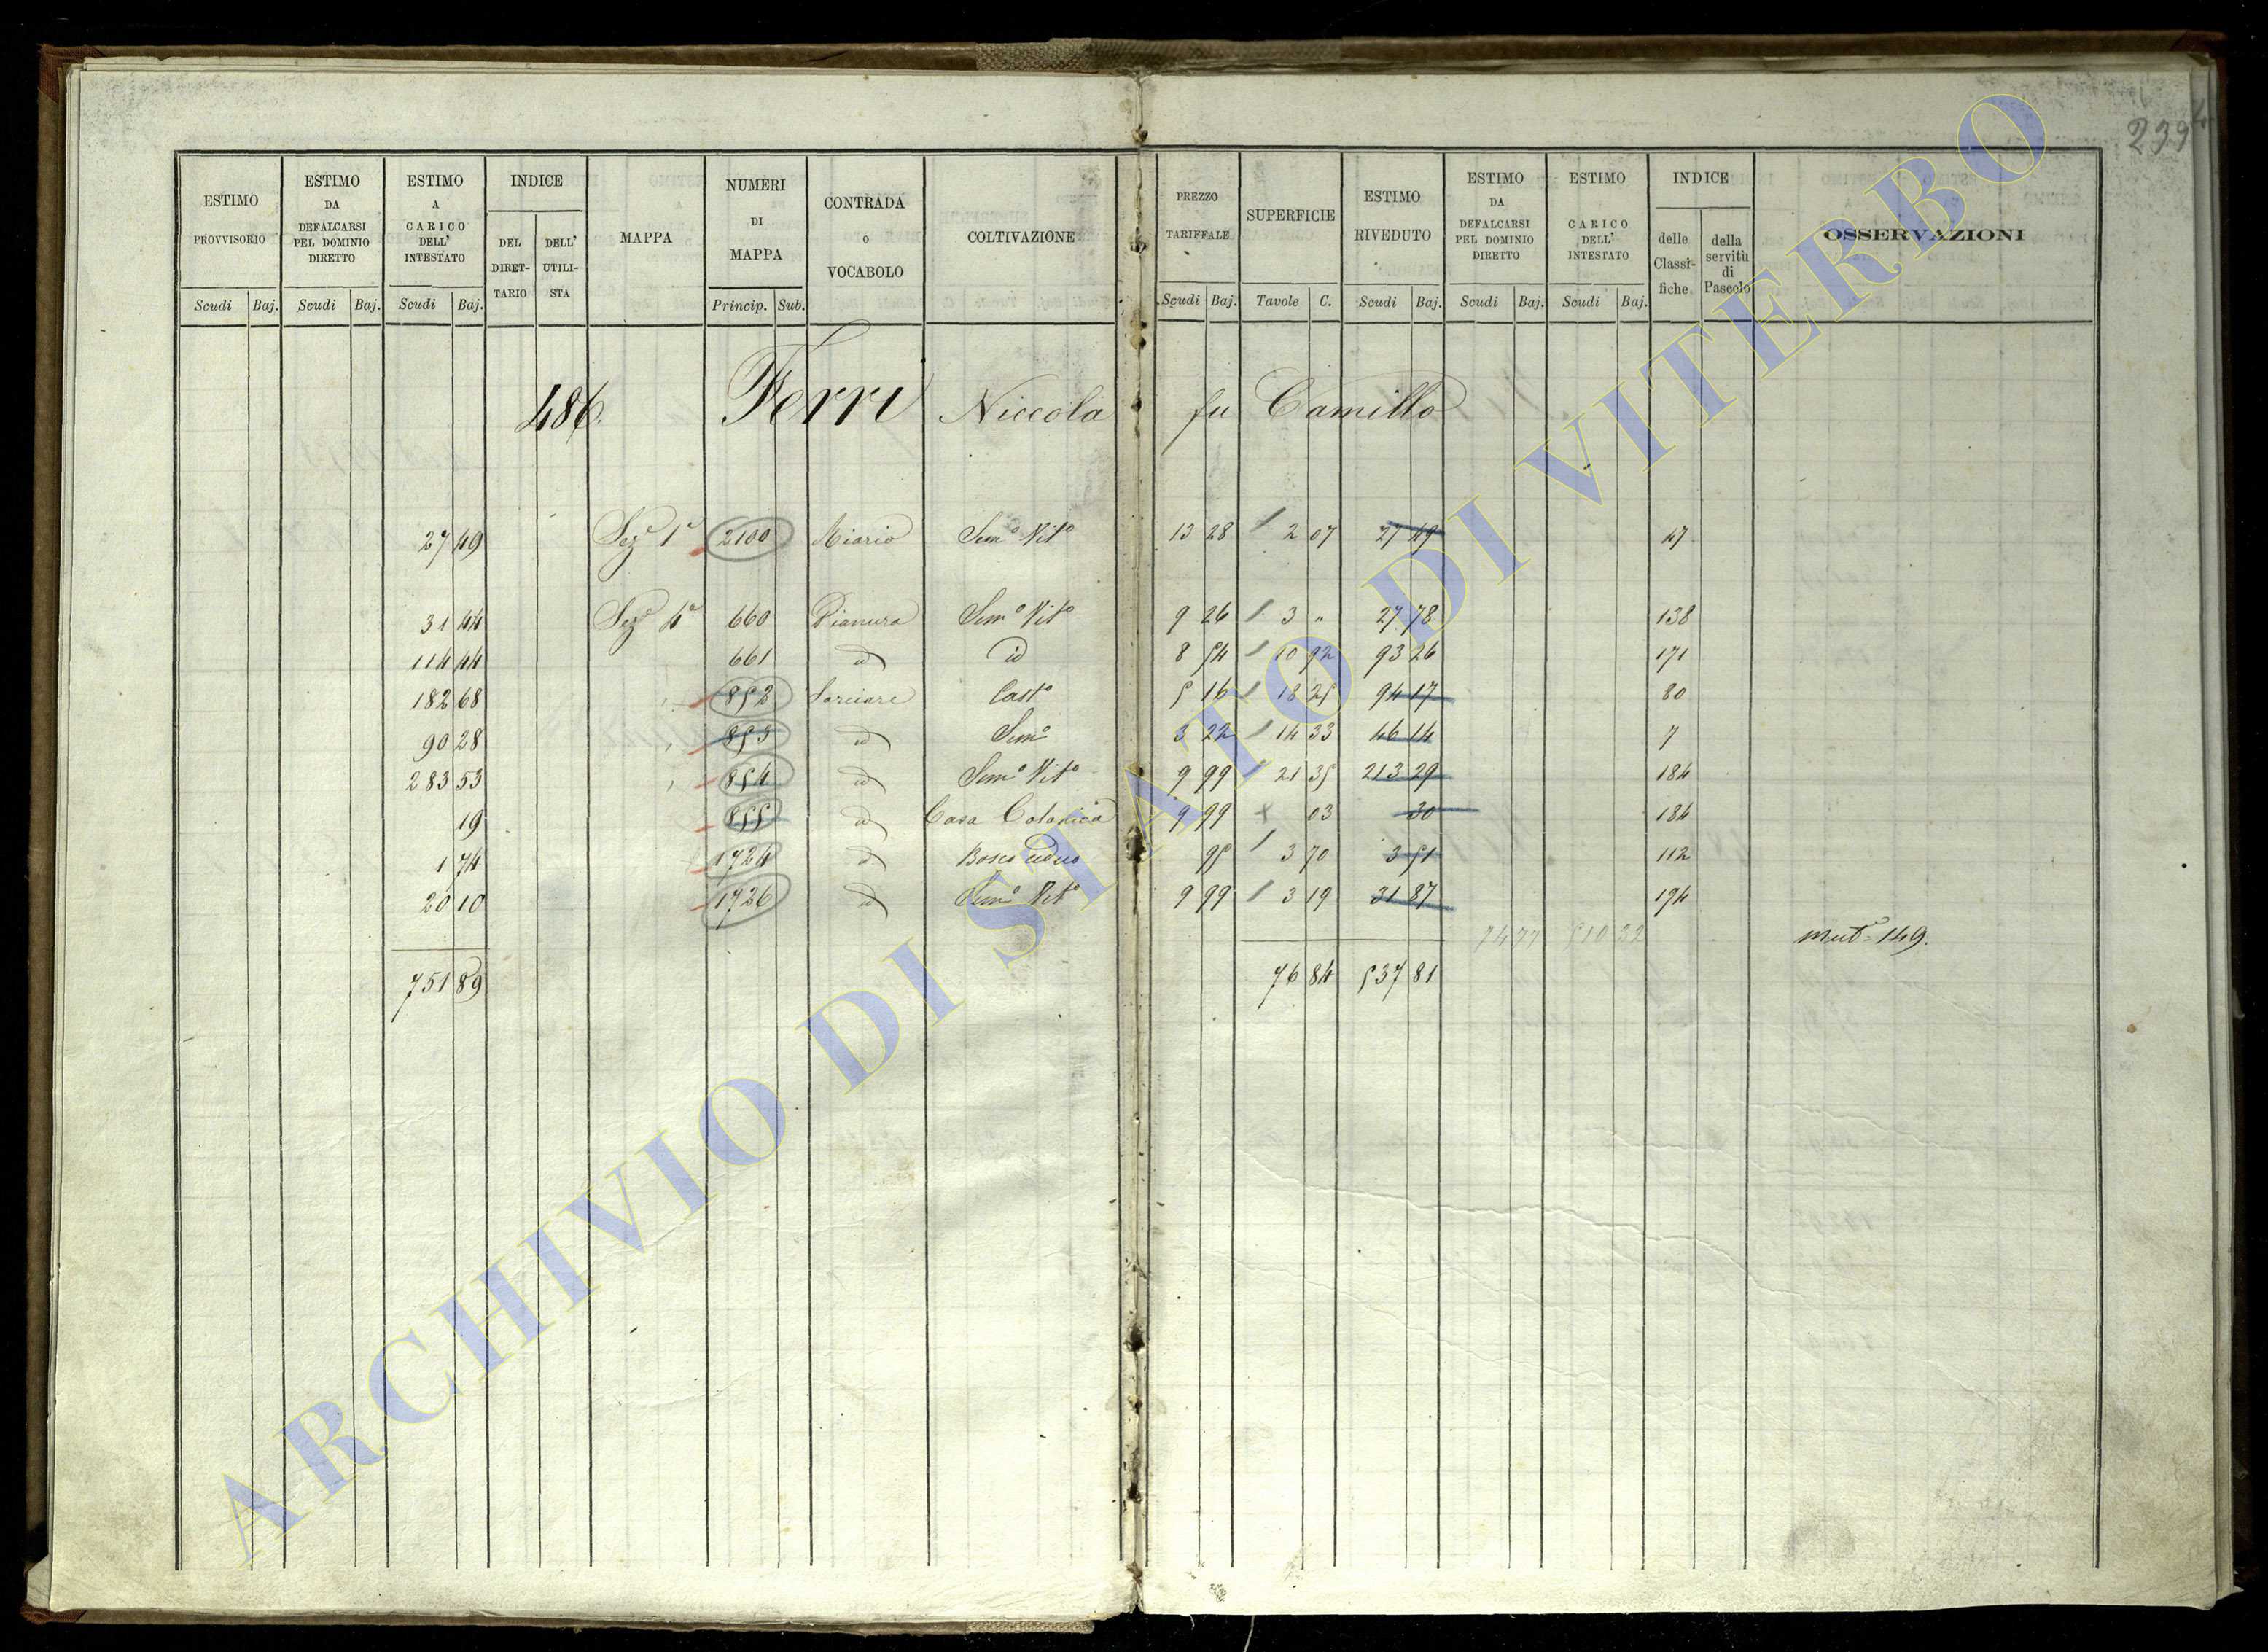 239
ESTIMO PROVVISORIO Scudi Baj. | ESTIMO DA DEFALCARSI PEL DOMINIO DIRETTO Scudi Baj. | ESTIMO A CARICO DELL' INTESTATO Scudi Baj. | INDICE DEL DIRET-TARIO | DELL' UTILI-STA | MAPPA | NUMERI DI MAPPA Princip. Sub. | CONTRADA o VOCABOLO | COLTIVAZIONE | PREZZO TARIFFALE Scudi Baj. | SUPERFICIE Tavole C. | ESTIMO RIVEDUTO Scudi Baj. | ESTIMO DA DEFALCARSI PEL DOMINIO DIRETTO Scudi Baj. | ESTIMO CARICO DELL' INTESTATO Scudi Baj. | INDICE delle Classi-fiche | della servitù di Pascolo | OSSERVAZIONI
486. Ferri Niccola fu Camillo
27 49 Sez.e 1a 2100 Riario Sem.o Vit.o 13 28 2 07 27 49 47
31 44 Sez.e 4a 660 Pianura Sem.o Vit.o 9 26 3 " 27 78 138
114 44 661 id id 8 54 10 92 93 26 171
182 68 852 Past.o 5 16 18 25 94 17 80
90 28 853 id Sem.o 3 22 14 33 46 14 7
283 53 854 id Sem.o Vit.o 9 99 21 35 213 29 184
19 855 id Casa Colonica 9 99 03 30 184
1 74 1724 id Bosco ceduo 95 3 70 3 51 112
20 10 1726 id Sem.o Vit.o 9 99 3 19 31 87 194
74 77 510 32 Mut.e 149.
751 89 76 84 537 81
ARCHIVIO DI STATO DI VITERBO